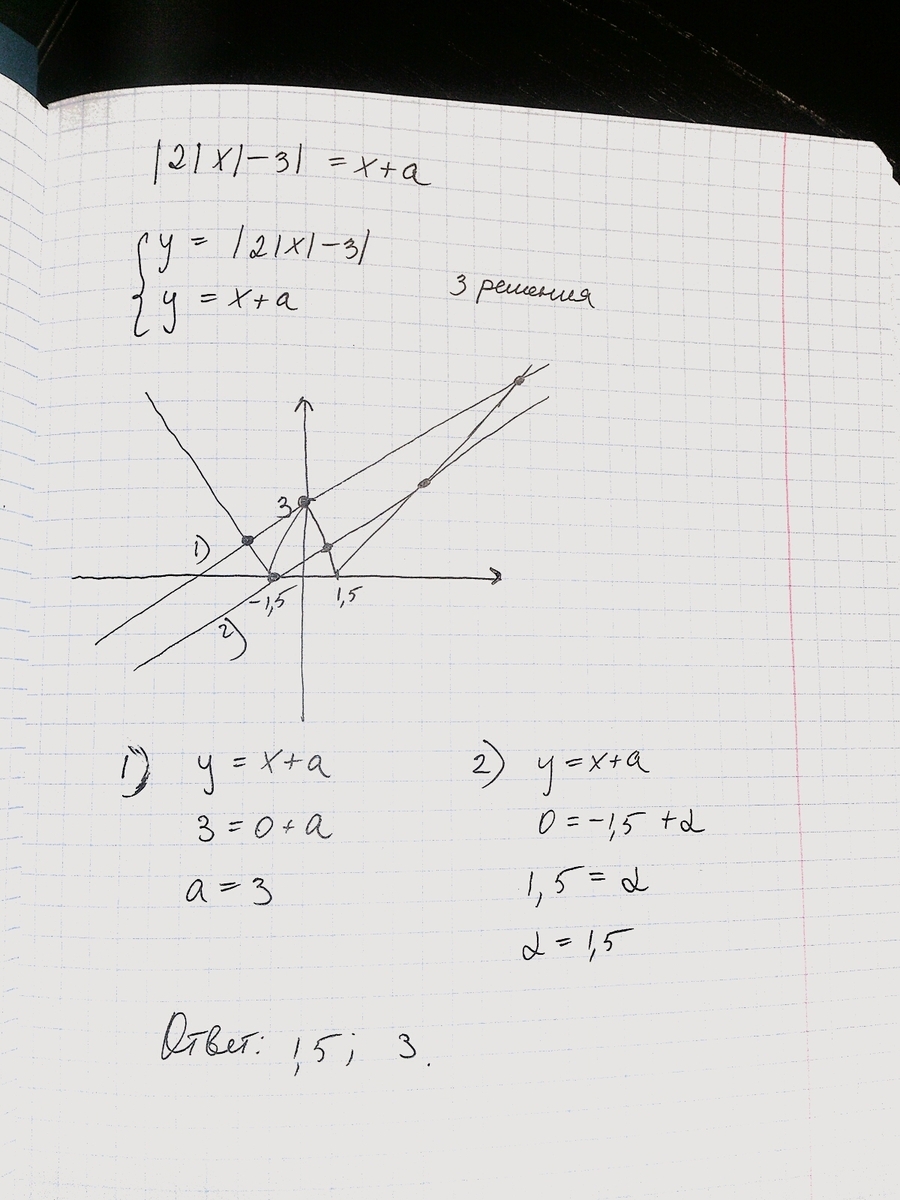 |2|x|-3| = x+a
{ y = |2|x|-3|
{ y = x+a
3 решения
3
1)
-1,5
1,5
2)
1) y = x+a
3 = 0+a
a = 3
2) y = x+a
0 = -1,5 + a
1,5 = a
a = 1,5
Ответ: 1,5; 3.